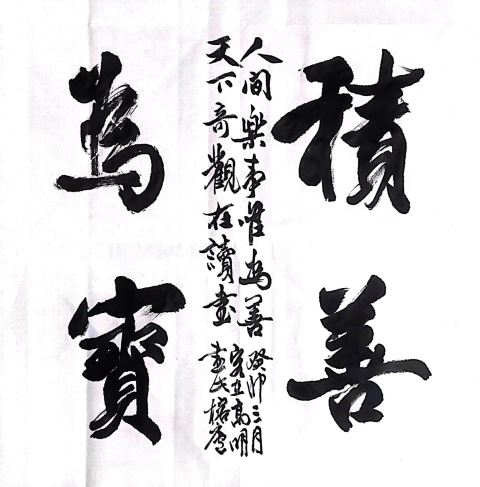 積善
為寶
人間樂事唯為善
天下奇觀在讀書
癸卯三月
高明
書於榕廬